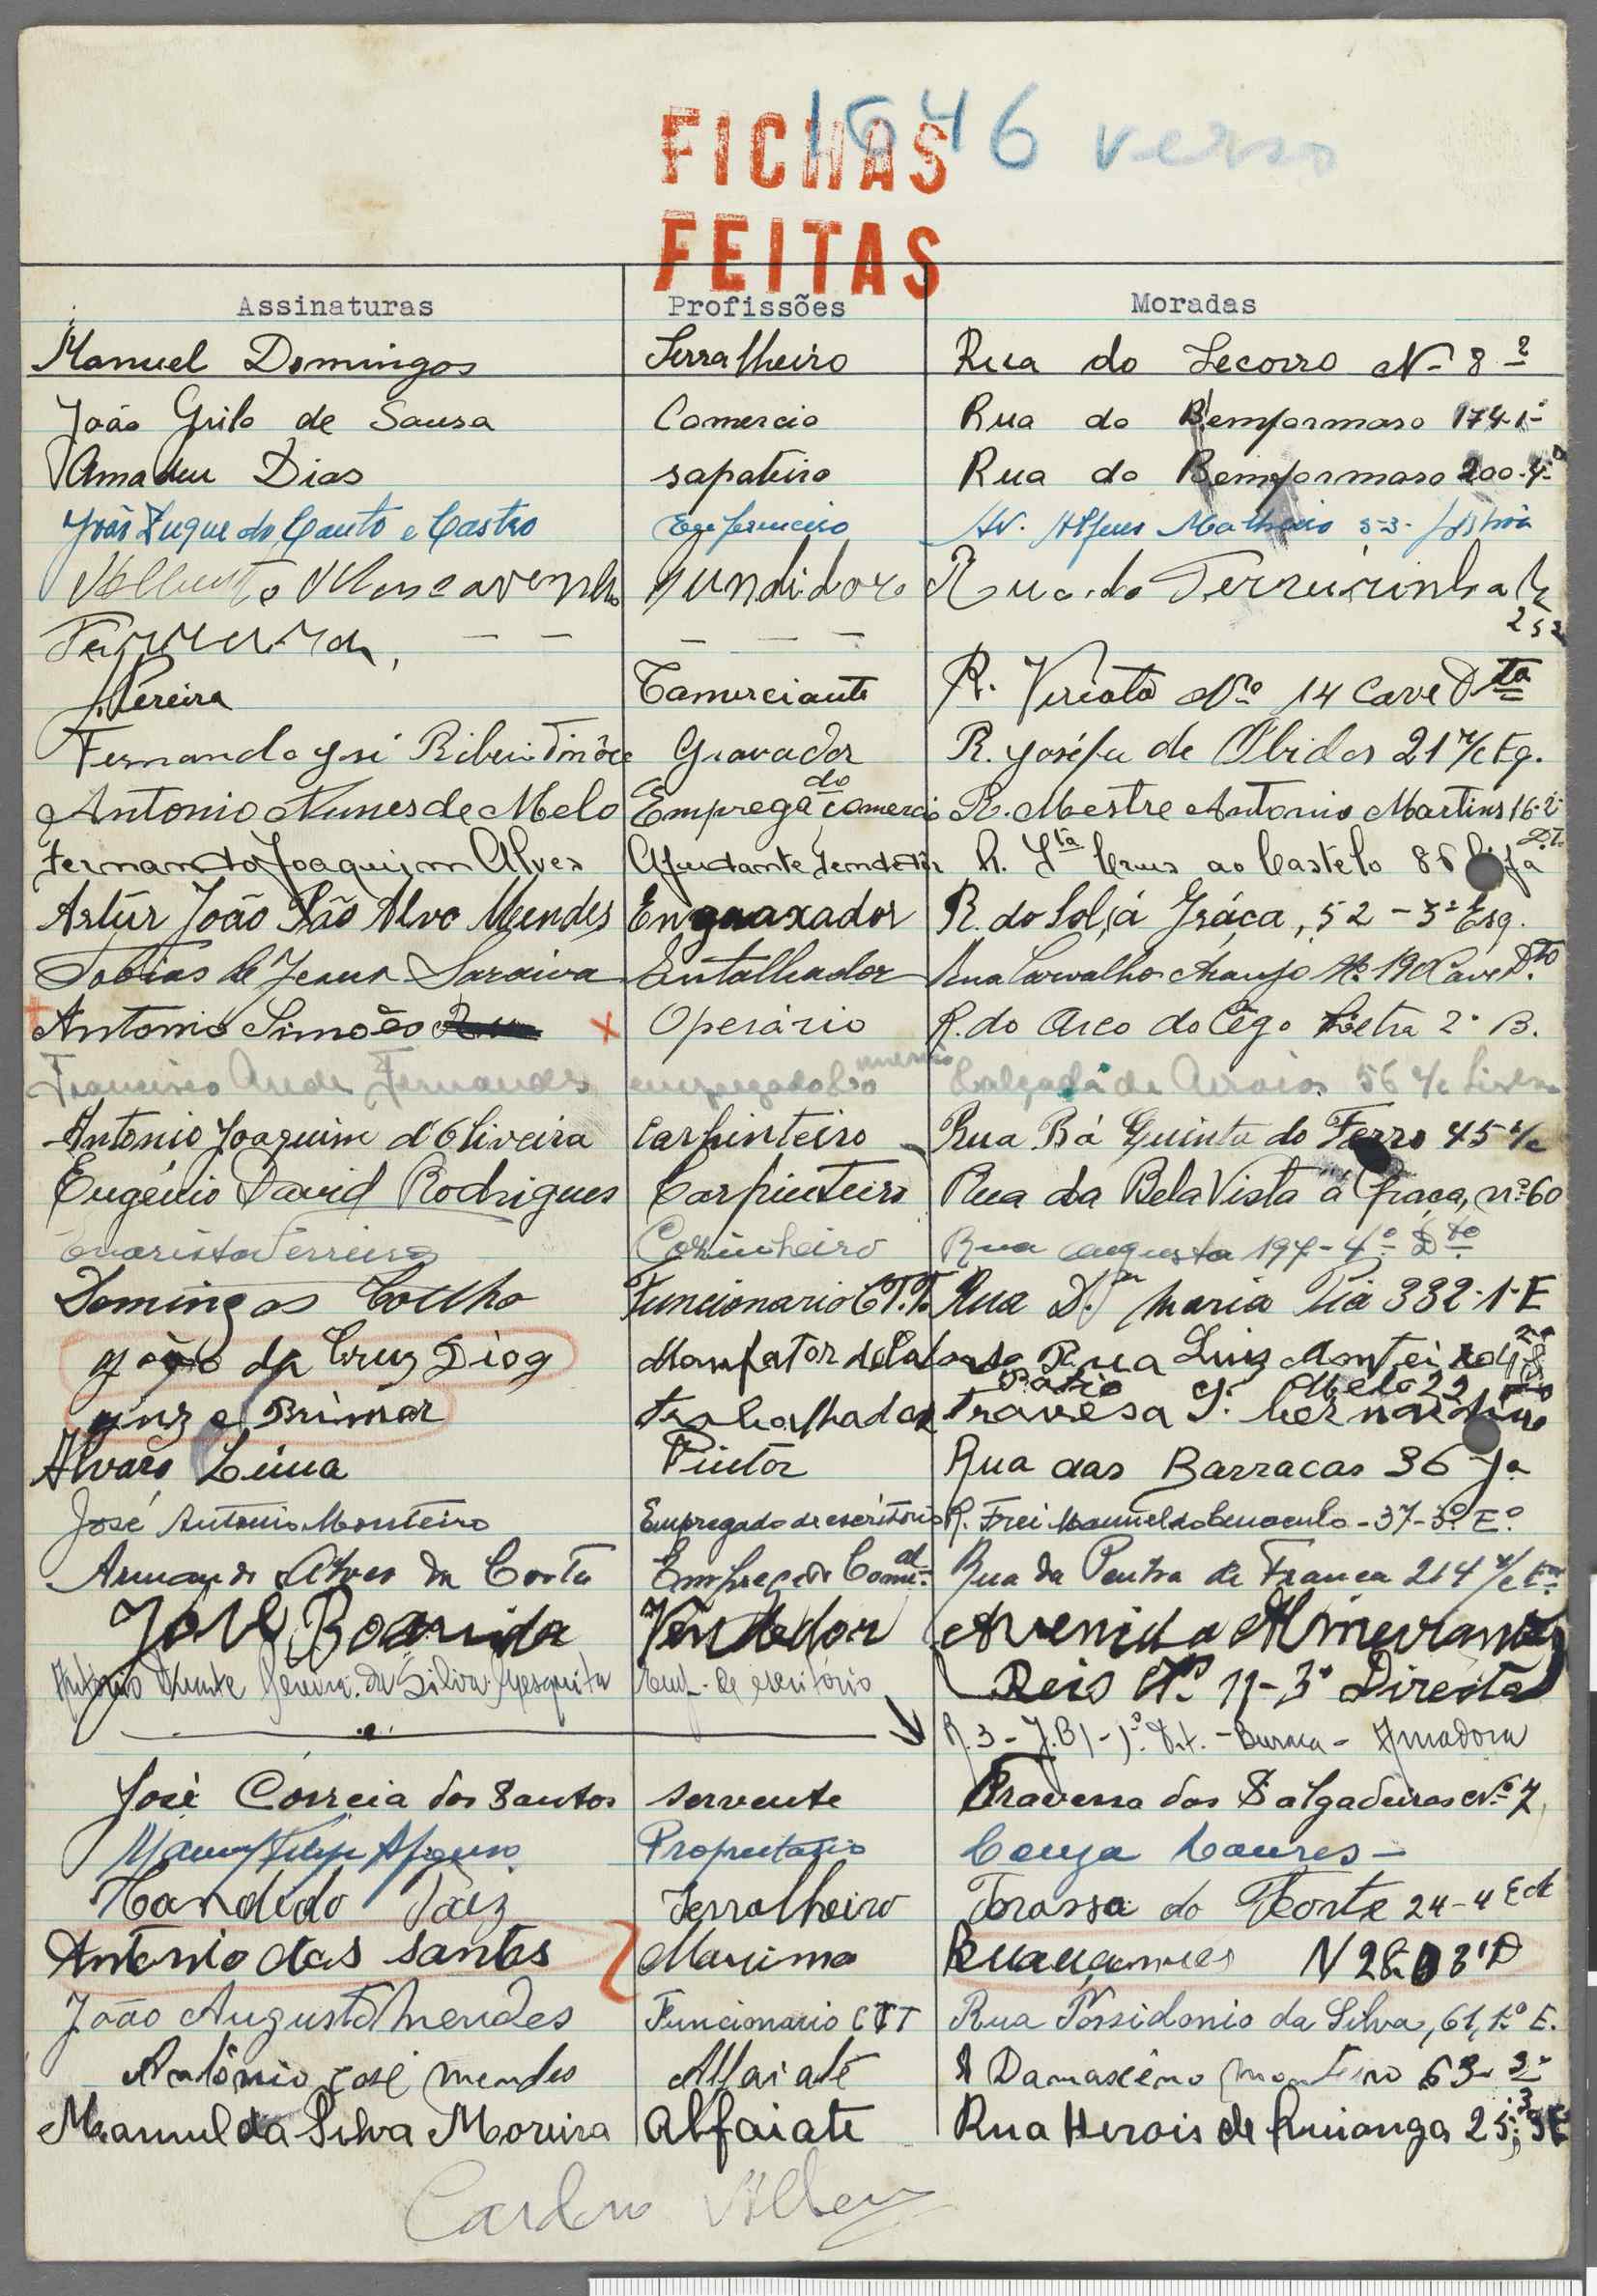 1646 verso
FICHAS
FEITAS
Assinaturas Profissões Moradas
Manuel Domingos Serralheiro Rua do Secorro Nº 8 2º
João Grilo de Sousa Comercio Rua do Bemformoso 174-1º
Amadeu Dias sapateiro Rua do Bemformoso 200-4º
João Luque do Canto e Castro Av. Alferes Malheiro 33- Lisboa
Alberto Mascarenhas Fundidor Rua do Terreirinho
Ferreira, — — — — — 2 52
Pereira Comerciante R. Viriato Nº 14 Cave Dta
Fernando José Ribeiro Gravador R. Joséfa de Obidos 21 r/c Eq.
Antonio Nunes de Melo Empregado comercio R. Mestre Antonio Martins 16-2º
D.T.
Fernando Joaquim Alves Ajudante R. Sta Crus ao Castelo 86 loja
Artur João São Alvo Mendes Engraxador R. do Sol, á Gráça, 52 - 3º Esq.
Tobias de Jesus Saraiva Entalhador Rua Carvalho Araujo Nº 190 Cave Dto
Antonio Simões Operário R. do Arco do Cêgo Letra 2º B.
Francisco Fernandes empregado Comercio Calçada de Arroios 56 r/c Lisboa
Antonio Joaquim d'Oliveira Carpinteiro Rua Bá Quinta do Ferro 45 r/c
Eugénio David Rodrigues Carpinteiro Rua da Bela Vista á Graça, nº 60
Evaristo Ferreira Cozinheiro Rua Augusta 197-4º Dto
Domingos Coelho Funcionario C.T.T. Rua D. Maria Pia 332-1º E
João da Cruz Diog Rua Luiz Monteiro
Patio
trabalhador Travesa S. bernardino
Alvaro Lima Pintor Rua das Barracas 36 Ja
José Antonio Monteiro Empregado de escritório R. Frei Manuel do Cenaculo - 37-3º Eº
Armando Alves da Costa Empregado Comal. Rua da Penha de França 214 r/c Esq
José Boavida Vendedor Avenida Almeirante
António Duarte Pereira da Silva Mesquita Emp. de escritório Reis Nº 11-3º Direita
R. 3 - J.B1 - 1º Dt. - Buraca - Amadora
José Correia dos Santos servente Travessa das Salgadeiras Nº 7
Manuel Filipe Afonso Proprietario Loures -
Candido Paiz Serralheiro do Forte 24-4 Ed
Antonio dos santos Marimo N 28 3º D
João Augusto Mendes Funcionario CTT Rua Possidonio da Silva, 61, 1º E.
António José Mendes Alfaiate R Damascêno monteiro 63-3º
Manuel da Silva Moreira Alfaiate Rua Herois de Quionga 25, 3º E